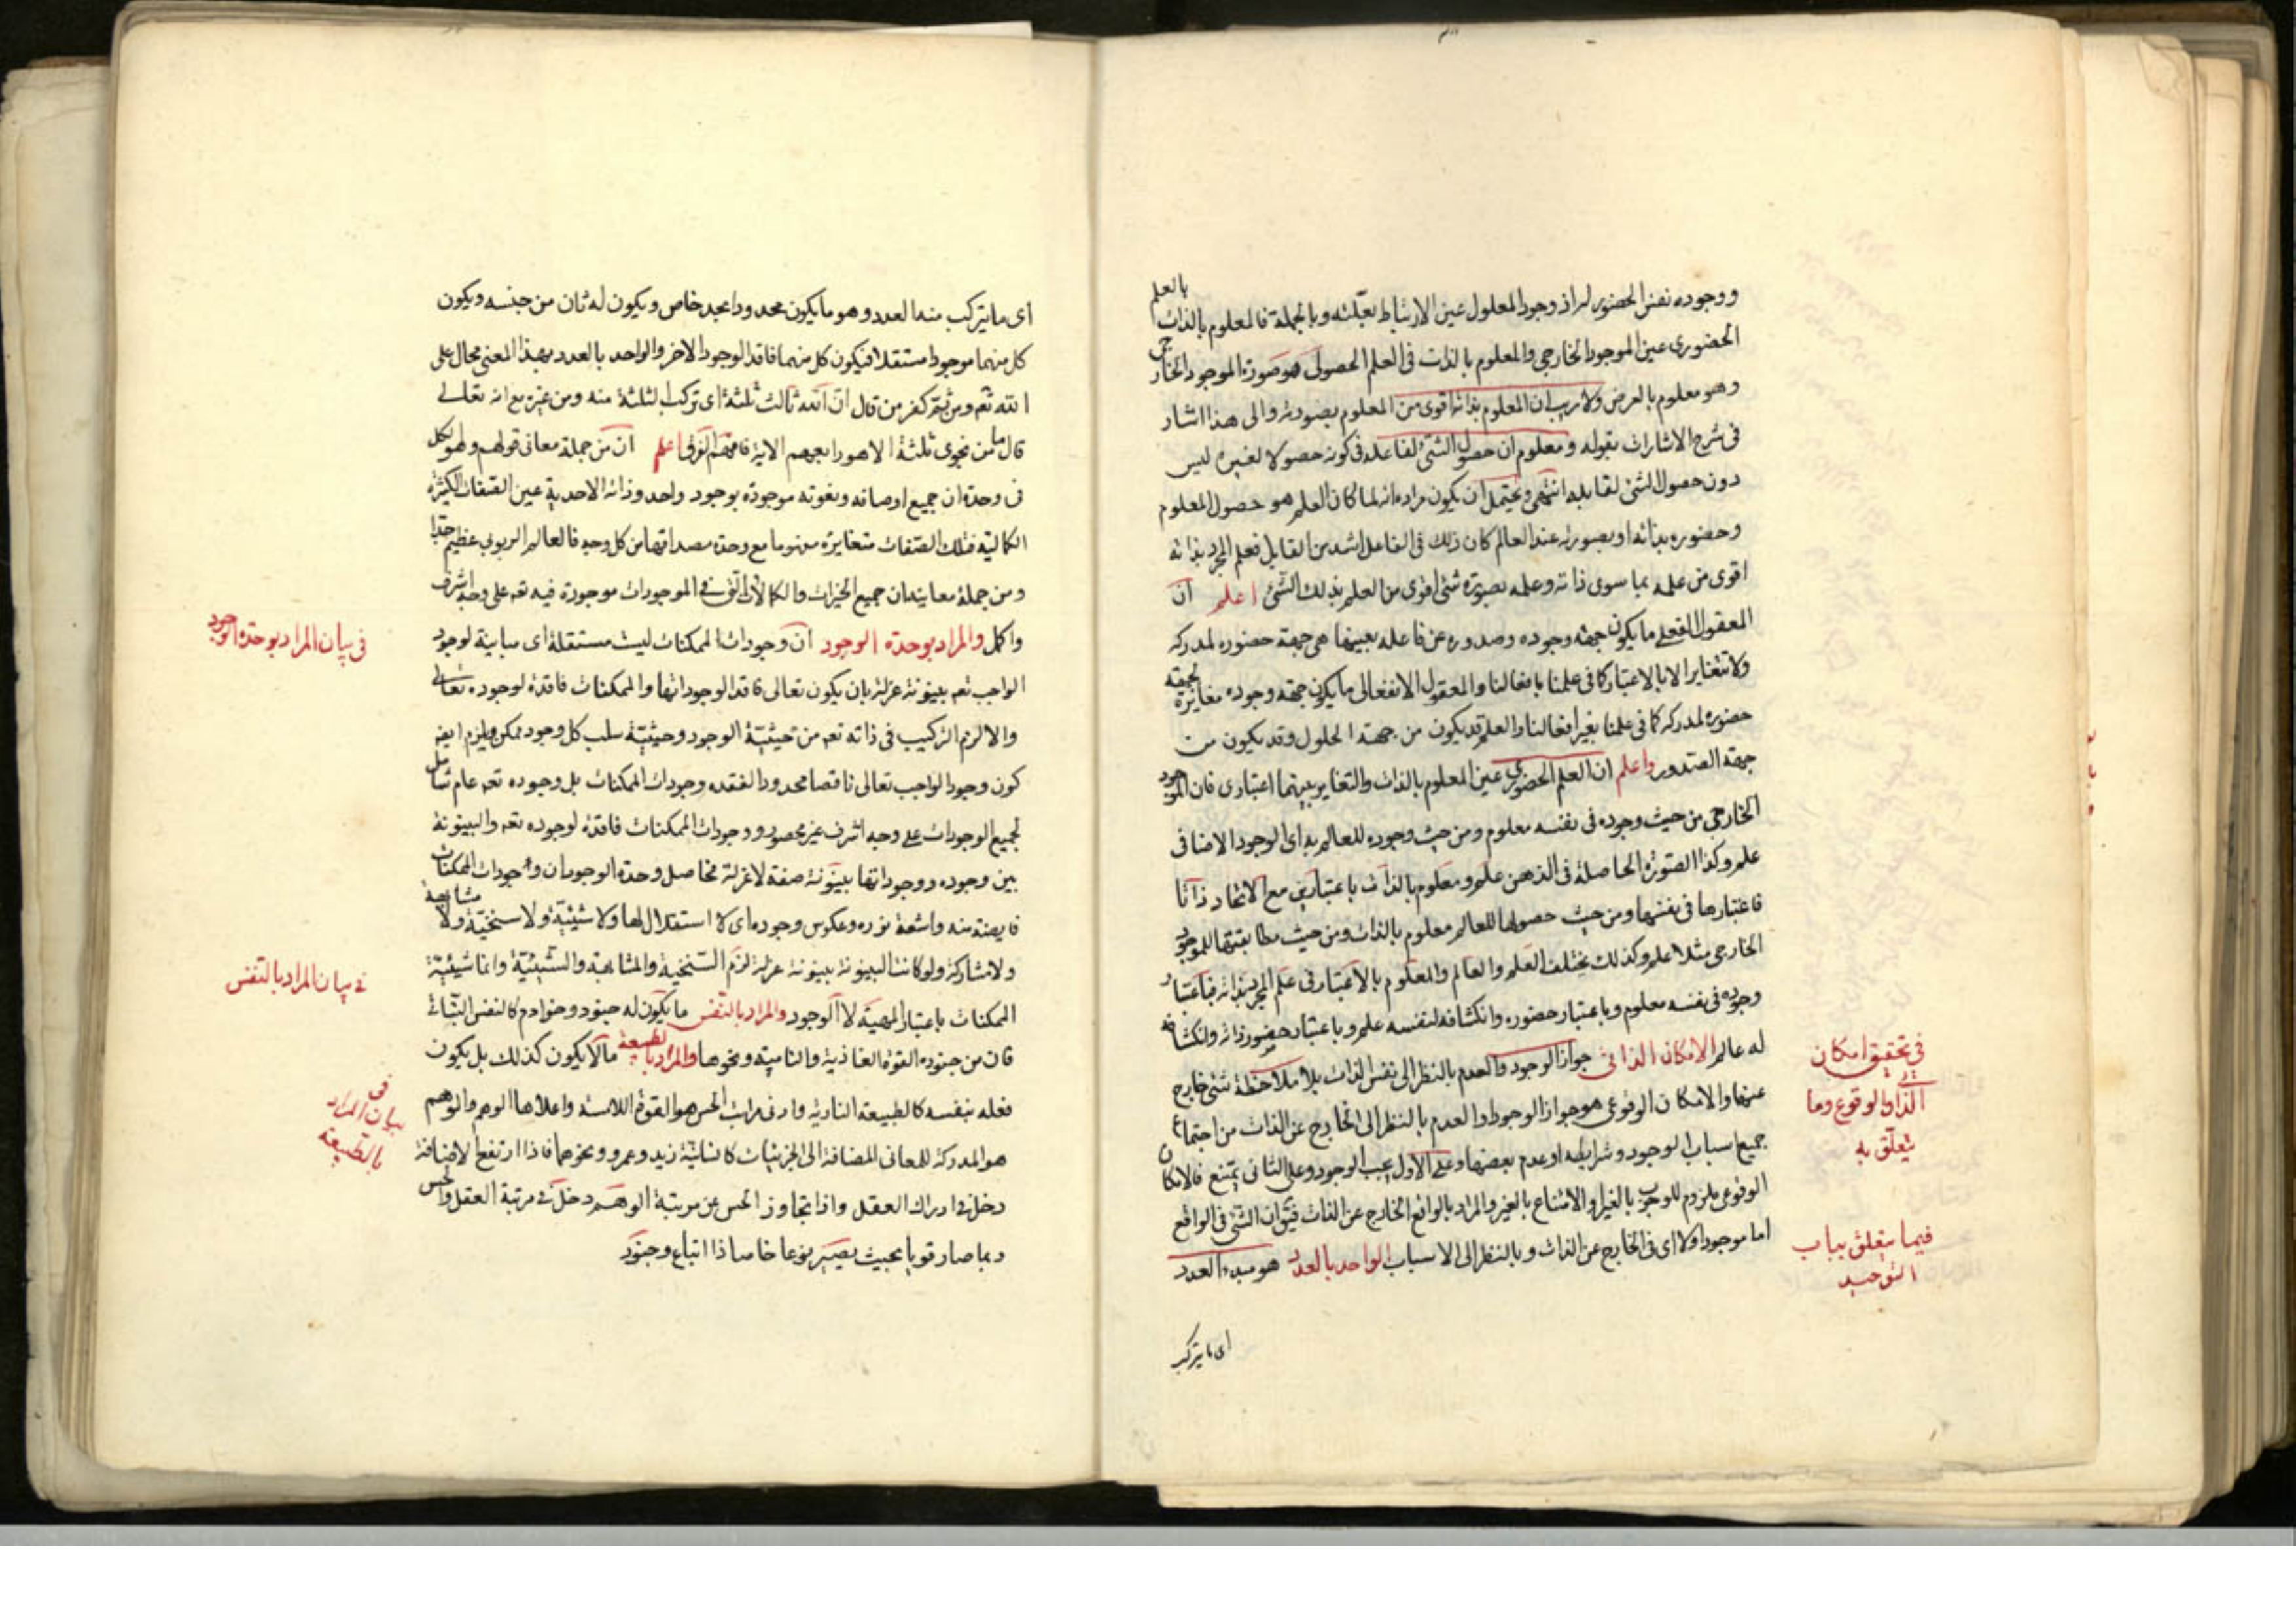 ووجوده نفس الحضور له اذ وجود المعلول عين الارتباط بعلته وبالجملة فالمعلوم بالذات بالعلم
الحضورى عين الموجود الخارجى والمعلوم بالذات فى العلم الحصولى هو صورة الموجود الخارجى
وهو معلوم بالعرض ولا ريب ان المعلوم بذاته اقوى من المعلوم بصورته والى هذا اشار
فى شرح الاشارات بقوله ومعلوم ان حصول الشئ لفاعله فى كونه حصولا لغيره ليس
دون حصول الشئ لقابله انتهى ويحتمل ان يكون مراده انه لما كان العلم هو حصول المعلوم
وحضوره بذاته او بصورته عند العالم كان ذلك فى الفاعل اشد من القابل فعلم المجرد بذاته
اقوى من علمه بما سوى ذاته وعلمه بصورة شئ اقوى من العلم بذلك الشئ اعلم ان
المعقول الفعلى ما يكون جهة وجوده وصدوره عن فاعله بعينها هى جهة حضوره لمدركه
ولا تتغاير الا بالاعتبار كما فى علمنا بافعالنا والمعقول الانفعالى ما يكون جهة وجوده مغايرة لجهة
حضوره لمدركه كما فى علمنا بغير افعالنا والعلم قد يكون من جهة الحلول وقد يكون من
جهة الصدور واعلم ان العلم الحضورى عين المعلوم بالذات والتغاير بينهما اعتبارى فان الموجود
الخارجى من حيث وجوده فى نفسه معلوم ومن حيث وجوده للعالم به اى الوجود الاضافى
علم وكذا الصورة الحاصلة فى الذهن علم ومعلوم بالذات باعتبارين مع الاتحاد ذاتا
فاعتبارها فى نفسها ومن حيث حصولها للعالم معلوم بالذات ومن حيث مطابقتها للموجود
الخارجى مثلا علم وكذلك يختلف العلم والعالم والمعلوم بالاعتبار فى علم المجرد بذاته فباعتبار
وجوده فى نفسه معلوم وباعتبار حضوره وانكشافه لنفسه علم وباعتبار حضور ذاته وانكشافه
له عالم الامكان الذاتى جواز الوجود والعدم بالنظر الى نفس الذات بلا ملاحظة شئ خارج
عنها والامكان الوقوعى هو جواز الوجود والعدم بالنظر الى الخارج عن الذات من اجتماع
جميع اسباب الوجود وشرايطه او عدم بعضها وعلى الاول يجب الوجود وعلى الثانى يمتنع فالامكان
الوقوعى ملزوم للوجوب بالغير او الامتناع بالغير والمراد بالواقع الخارج عن الذات فيق ان الشئ فى الواقع
اما موجود او لا اى فى الخارج عن الذات وبالنظر الى الاسباب الواحد بالعدد هو مبدء العدد
فى تحقيق امكان
الذاتى والوقوع وما
يتعلق به
فيما يتعلق بباب
التوحيد
اى ما يتركب
اى ما يتركب منه العدد وهو ما يكون محدودا بحد خاص ويكون له ثان من جنسه ويكون
كل منهما موجودا مستقلا فيكون كل منهما فاقد الوجود الاخر والواحد بالعدد بهذا المعنى محال على
الله تعم ومن ثم كفر من قال ان الله ثالث ثلثة اى تركب الثلثة منه ومن غيره مع انه تعالى
قال ما من نجوى ثلثة الا هو رابعهم الاية فافهم الفرق اعلم ان من جملة معانى قولهم وهو الكل
فى وحدة ان جميع اوصافه ونعوته موجودة بوجود واحد وذاته الاحدية عين الصفات الكثيرة
الكمالية فتلك الصفات متغايرة مفهوما مع وحدة مصداقها من كل وجه فالعالم الربوبى عظيم جدا
ومن جملة معانيه ان جميع الخيرات والكمالات التى فى الموجودات موجودة فيه تعم على وجه اشرف
واكمل والمراد بوحدة الوجود ان وجودات الممكنات ليست مستقلة اى مباينة لوجود
الواجب تعم بينونة عزلة بان يكون تعالى فاقد الوجوداتها والممكنات فاقدة لوجوده تعالى
والا لزم التركيب فى ذاته تعم من حيثية الوجود وحيثية سلب كل وجود ممكن ويلزم ايضا
كون وجود الواجب تعالى ناقصا محدودا لفقده وجودات الممكنات بل وجوده تعم عام شامل
لجميع الوجودات على وجه اشرف غير محصور ووجودات الممكنات فاقدة لوجوده تعم والبينونة
بين وجوده ووجوداتها بينونة صفة لا عزلة فحاصل وحدة الوجود ان وجودات الممكنات
فايضة منه واشعة نوره وعكوس وجوده اى لا استقلال لها ولا شيئية ولا سنخية ولا مشابهة
ولا مشاركة ولو كانت البينونة بينونة عزلة لزم السنخية والمشابهة والشيئية وانما شيئية
الممكنات باعتبار المهية لا الوجود والمراد بالنفس ما يكون له جنود وخوادم كالنفس النباتى
فان من جنوده القوة الغاذية والنامية ونحوها والمراد بالطبيعة ما لا يكون كذلك بل يكون
فعله بنفسه كالطبيعة النارية وادنى مراتب الحس هو القوة اللامسة واعلاها الوهم والوهم
هو المدركة للمعانى المضافة الى الجزئيات كانسانية زيد وعمرو ونحوهما فاذا ارتفع الاضافة
دخل فى ادراك العقل واذا تجاوز الحس عن مرتبة الوهم دخل فى مرتبة العقل والحس
ربما صار قويا بحيث يصير نوعا خاصا ذا اتباع وجنود
فى بيان المراد بوحدة الوجود
فى بيان المراد بالنفس
فى
بيان المراد
بالطبيعة